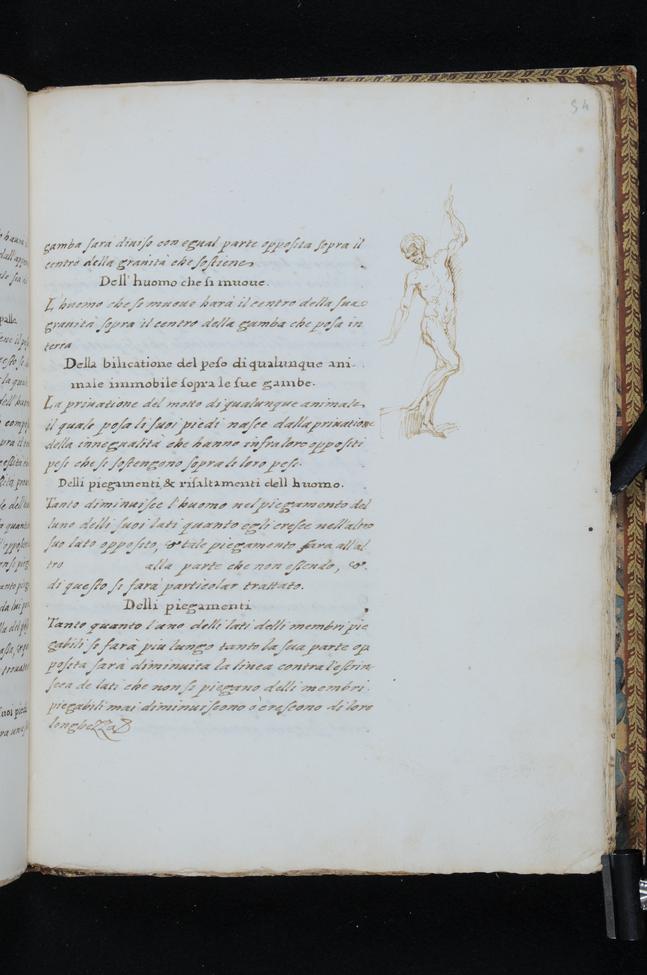 54
gamba sarà diviso con egual parte opposita sopra il
centro della gravità che sostiene
Dell' huomo che si muove.
L huomo che si muove harà il centro della sua
gravità sopra 'il centro della gamba che posa in
terra
Della bilicatione del peso di qualunque ani-
male immobile sopra le sue gambe.
La privatione del motto di qualunque animale
il quale posa li suoi piedi nasce dalla privatione
della innegualità che hanno infra loro oppositi
pesi che si sostengono sopra le loro pese.
Delli piegamenti & risaltamenti dell huomo.
Tanto diminuisce l'huomo nel piegamento del
luno delli suoi lati quanto egli cresce nell'altro
suo lato opposito, & tale piegamento sara all'al
tro alla parte che non estende, &
di questo si farà particolar trattato.
Delli piegamenti
Tanto quanto l'uno delli lati delli membri pie
gabili si farà piu lungo tanto la sua parte op
posita sarà diminuita la linea contral'estrin
seca de lati che non si piegano delli membri
piegabili mai diminuiscono o crescono di loro
longhezza